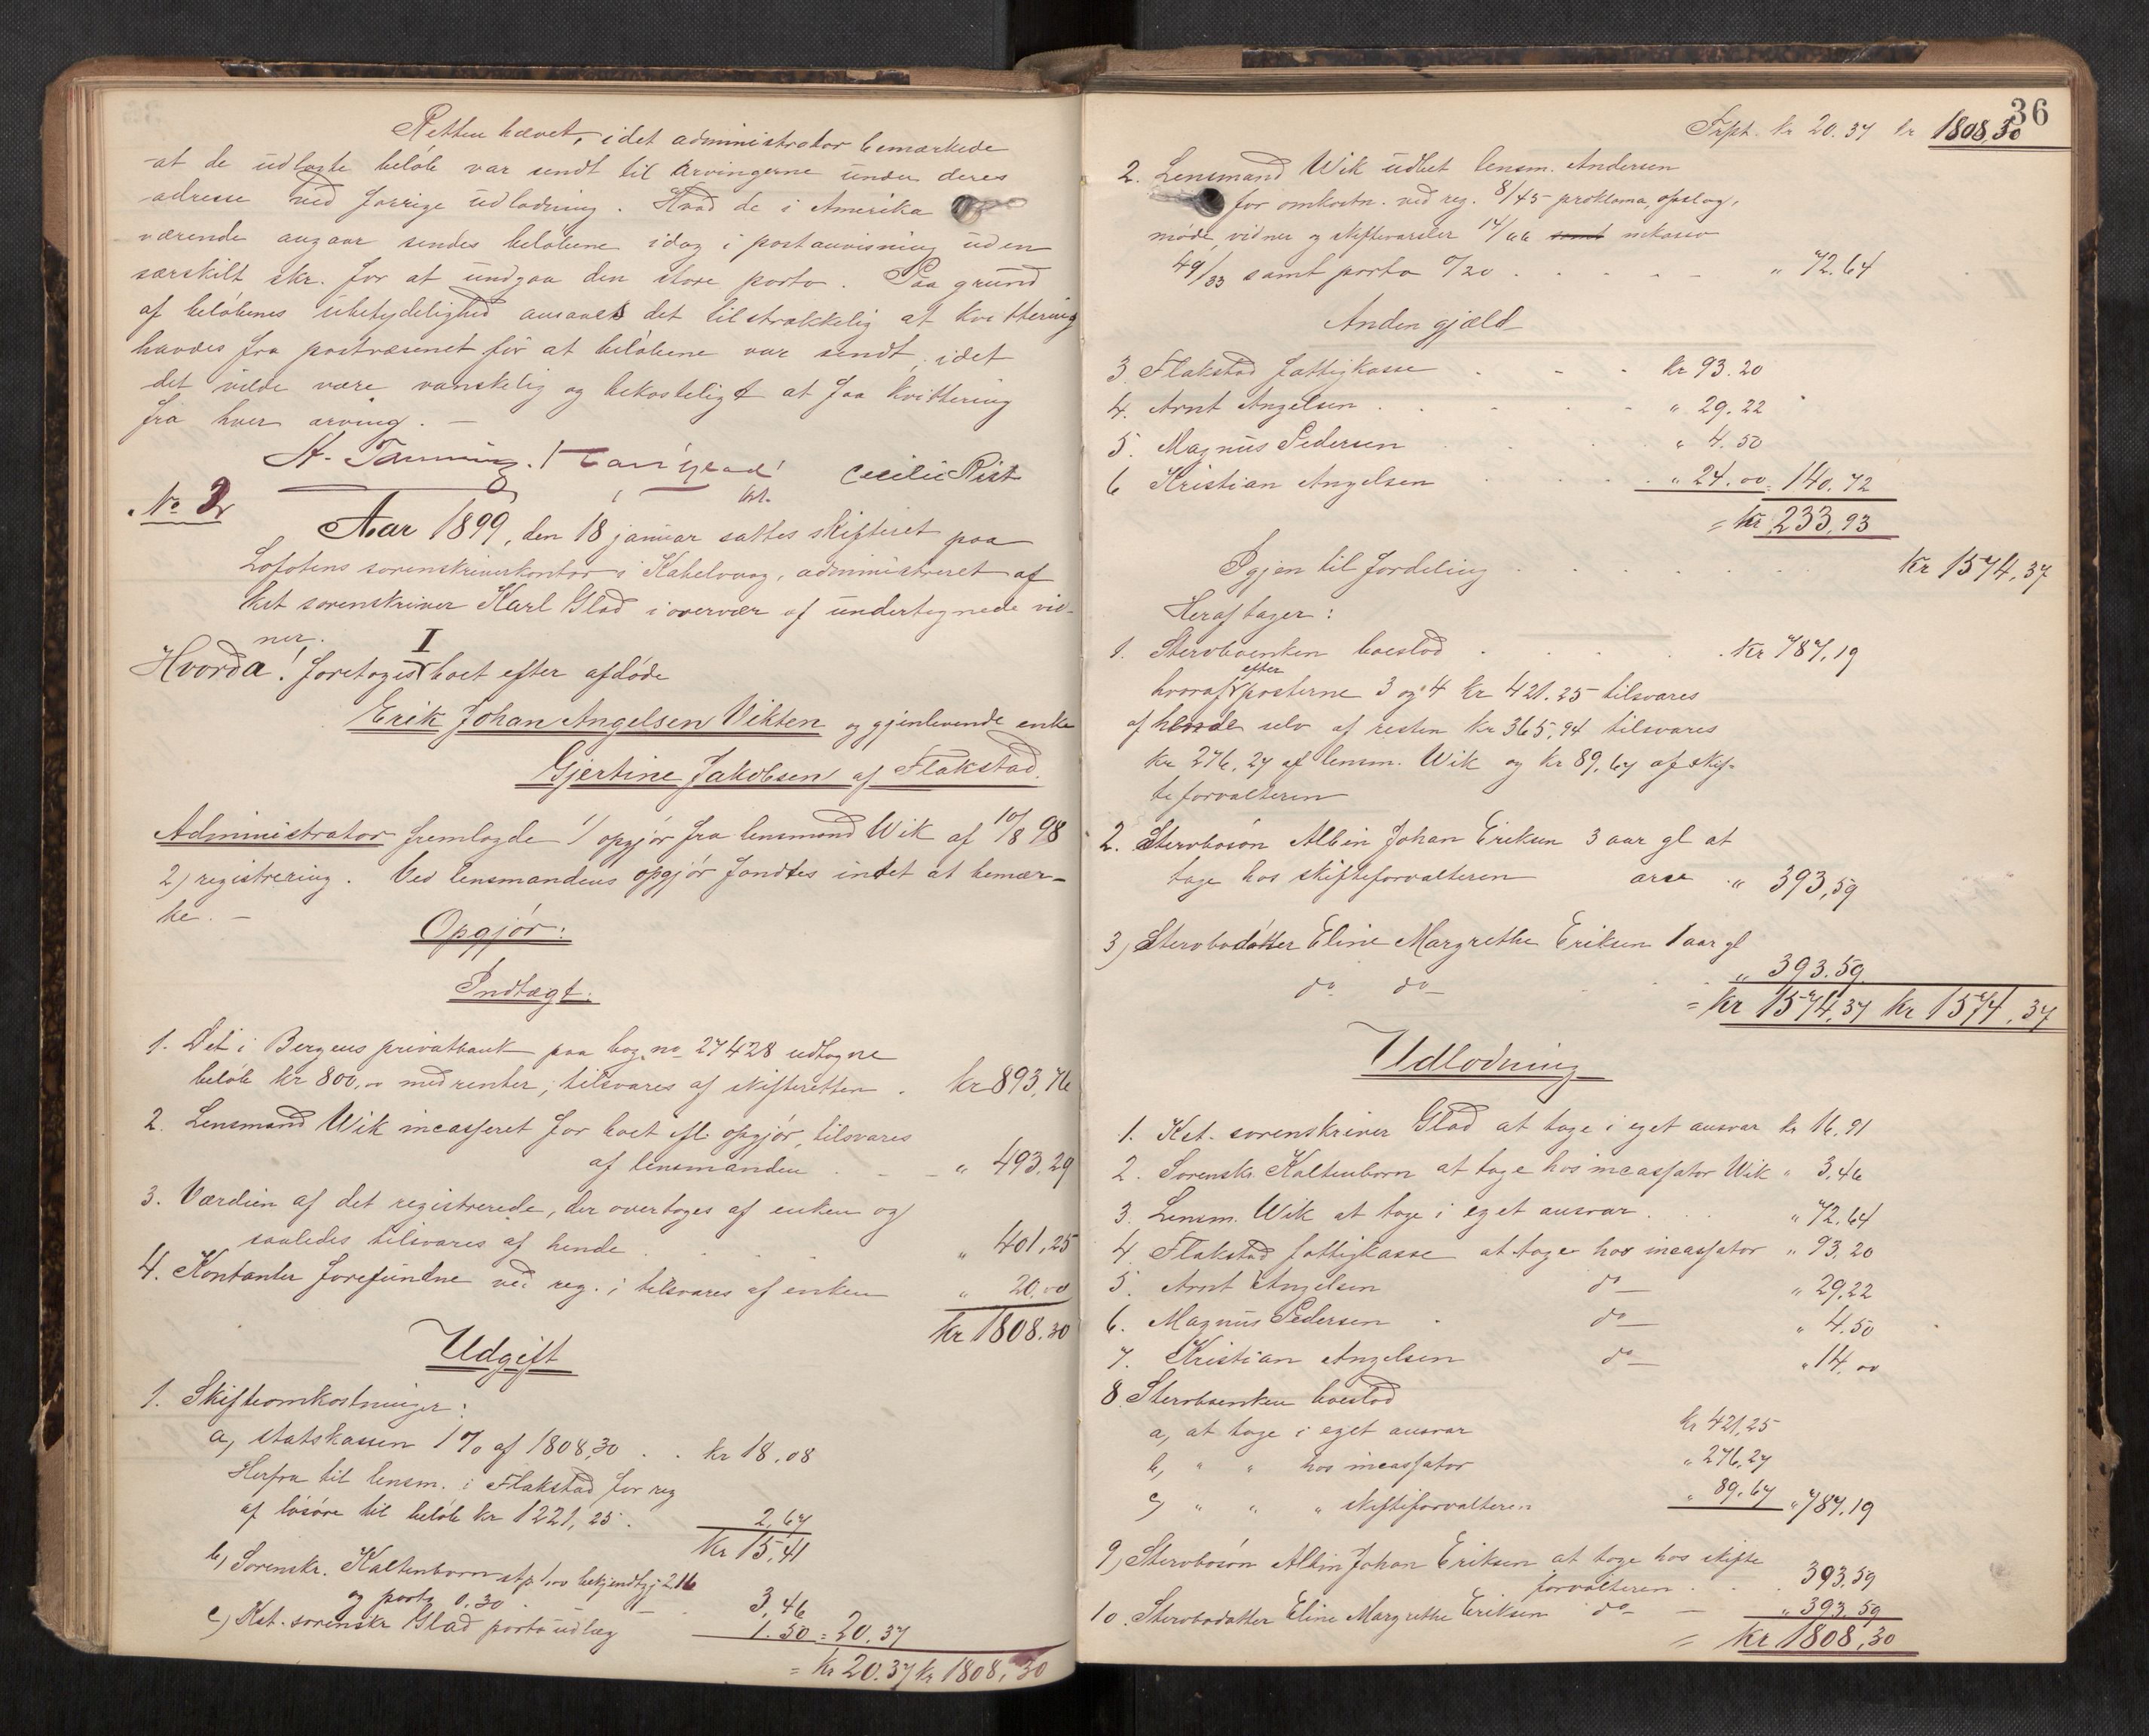 Retten hævet, idet administrator bemærkede
at de udlagte beløb var sendt til arvingerne under deres
adresse ved forrige udlodning. Hvad de i Amerika
værende angaar sendes beløbene idag i postanvisning uden
særskilt skr. for at undgaa den store porto. Paa grund
af beløbenes ubetydelighed ansaaes det tilstrækkelig at kvittering
havdes fra postvæsenet for at beløbene var sendt, idet
det vilde være vanskelig og bekosteligt at faa kvittering
fra hver arving. —
Karl Glad Cecilie Rist
kst.
No 2
Aar 1899, den 18 januar sattes skifteret paa
Lofotens sorenskriverkontor i Kabelvaag, administreret af
kst sorenskriver Karl Glad i overvær af undertegnede vid-
ner.
I
Hvorda! foretoges boet efter afdøde
Erik Johan Angelsen Vikten og gjenlevende enke
Gjertine Jakobsen af Flakstad.
Administrator fremlagde 1/ opgjør fra lensmand Wik af 10/8 98
2) registrering. Ved lensmandens opgjør fandtes intet at bemær-
ke. —
Opgjør:
Indtægt.
1. Det i Bergens privatbank paa bog no 27428 udtagne
beløb kr 800,00 med renter, tilsvares af skifteretten . kr 893,76
2. Lensmand Wik incasseret for boet efl. opgjør, tilsvares
af lensmanden . – – " 493,29
3. Værdien af det registrerede, der overtages af enken og
saaledes tilsvares af hende . . . . " 401,25
4. Kontanter forefundne ved reg. i tilsvares af enken " 20,00
kr 1808.30
Udgift
1. Skifteomkostninger:
a, statskassen 1 % af 1808,30 . . kr 18,08
Herfra til lensm. i Flakstad for reg
af løsøre til beløb kr 1221,25 . 2,67
kr 15,41
b) Sorenskr. Kaltenborn stp 1,00 bekjendtgj 2.16
og porto 0.30 . – . 3,46
c) Kst. sorenskr Glad porto udlæg 1.50 = 20,37
= kr 20.37 kr 1808,30
36
Trpt. kr 20.37 kr 1808,30
2. Lensmand Wik udbet lensm. Andersen
for omkostn. ved reg. 8/45 proklama, opslag,
møde, vidner og skiftevarsler 14/66 samt inkasso
49/33 samt porto 0/20 . . . . – " 72.64
Anden gjæld
3. Flakstad fattigkasse . - - kr 93.20
4. Arnt Angelsen . . - . - " 29.22
5. Magnus Pedersen . . . " 4.50
6 Kristian Angelsen . . . . " 24.00 = 140.72
= kr 233,93
Igjen til fordeling . . . . . . . kr 1574,37
Heraf tager:
1. Stervboenken boeslod . . . . kr 787,19
hvoraf efter posterne 3 og 4 kr 421.25 tilsvares
af hende selv af resten kr 365,94 tilsvares
kr 276,27 af lensm. Wik og kr 89,67 af skif-
teforvalteren
2. Stervbosøn Albin Johan Eriksen 3 aar gl at
tage hos skifteforvalteren arv " 393,59
3) Stervbodatter Eline Margrethe Eriksen 1 aar gl
do do – . . " 393.59
= kr 1574,37 kr 1574,37
Udlodning
1. Kst. sorenskriver Glad at tage i eget ansvar kr 16,91
2. Sorenskr. Kaltenborn at tage hos incassator Wik " 3,46
3. Lensm. Wik at tage i eget ansvar . . . " 72,64
4. Flakstad fattigkasse at tage hos incassator " 93,20
5. Arnt Angelsen do – " 29,22
6. Magnus Pedersen . do – " 4.50
7. Kristian Angelsen do – " 14,00
8 Stervboenken boeslod
a, at tage i eget ansvar kr 421,25
b, " " hos incassator " 276,27
c) " " " skifteforvalteren " 89,67 " 787,19
9) Stervbosøn Albin Johan Eriksen at tage hos skifte
forvalteren . . . 393,59
10. Stervbodatter Eline Margrethe Eriksen do – – " 393,59
= kr 1808,30